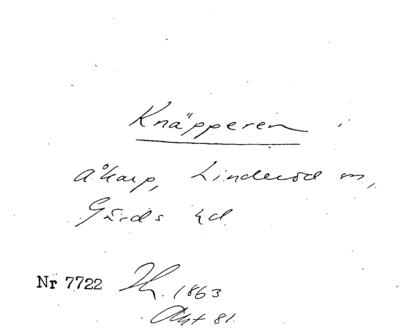 Knäpperen i
Åkarp, Linderöd sn,
Gärds hd
Nr 7722 1863
Akt 81.